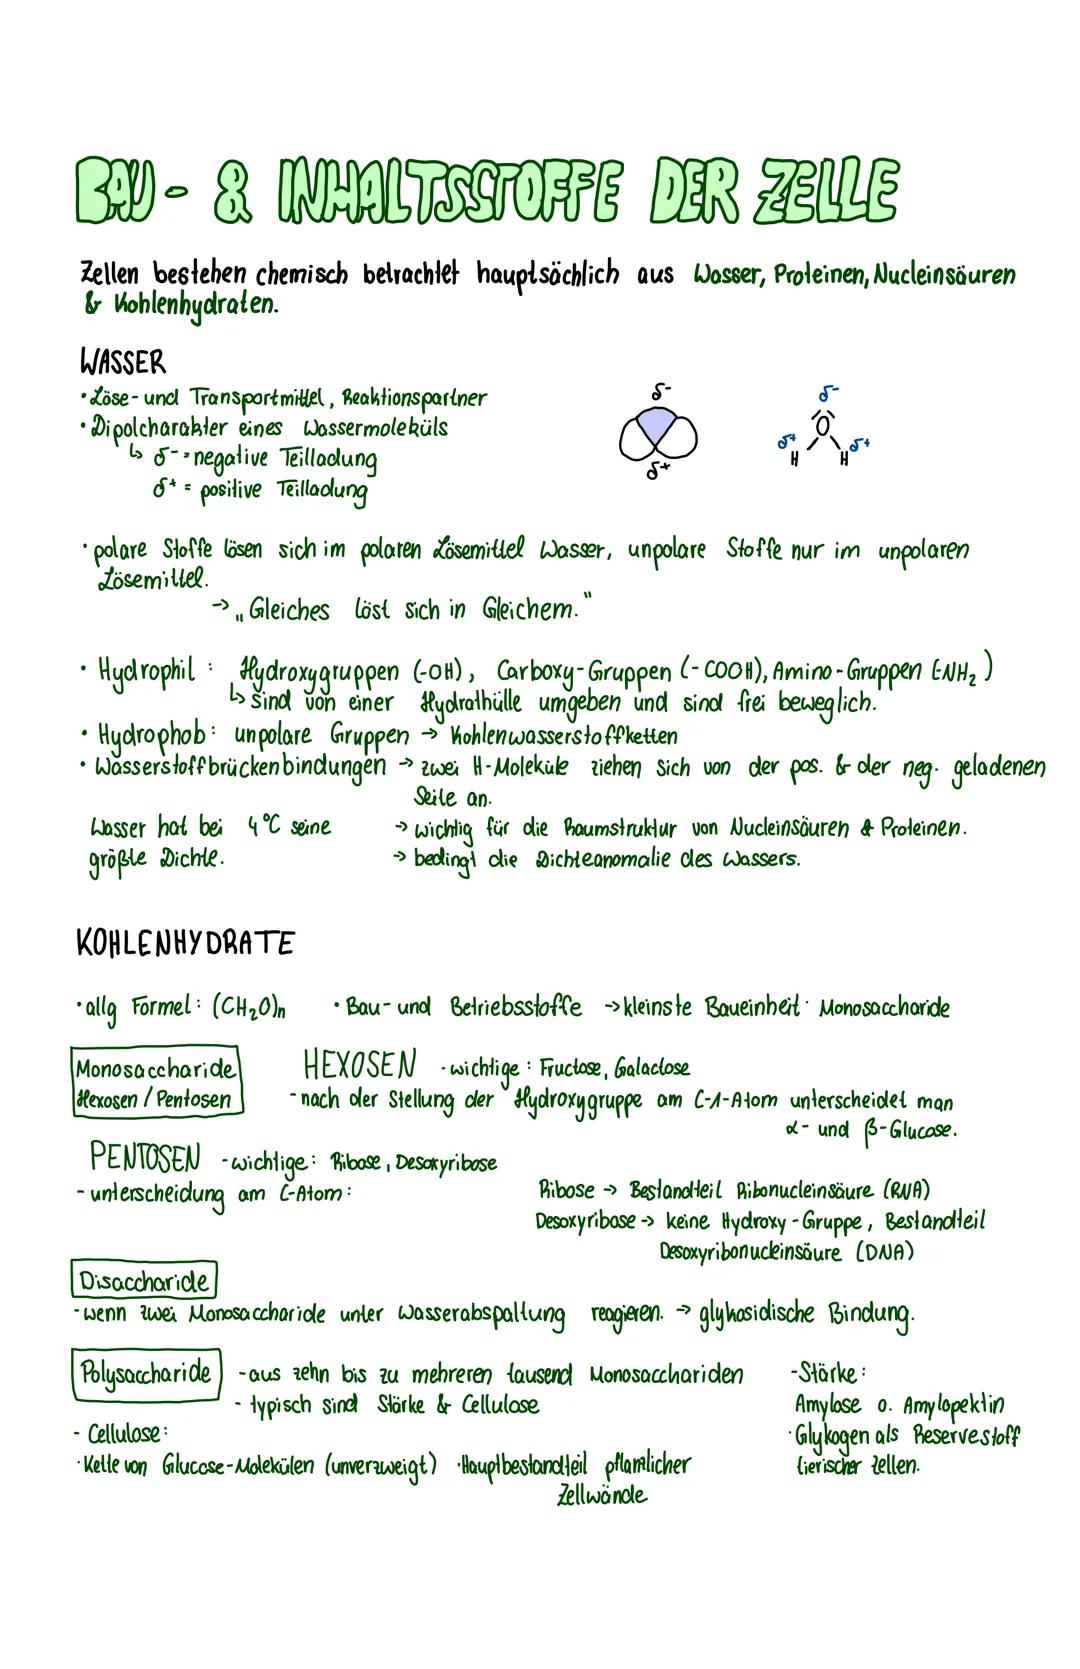 BAU- & INHALTSSTOFFE DER ZELLE
Zellen bestehen chemisch betrachtet hauptsächlich aus Wasser, Proteinen, Nucleinsäuren
& Kohlenhydraten.
WASSER
• Löse- und Transportmittel, Reaktionspartner
• Dipolcharakter eines Wassermoleküls
↳ δ- = negative Teilladung
δ+ = positive Teilladung
δ-
δ+
δ-
O
δ+ δ+
H H
• polare Stoffe lösen sich im polaren Lösemittel Wasser, unpolare Stoffe nur im unpolaren
Lösemittel.
→ „Gleiches löst sich in Gleichem."
• Hydrophil: Hydroxygruppen (-OH), Carboxy-Gruppen (-COOH), Amino-Gruppen (-NH₂)
↳ sind von einer Hydrathülle umgeben und sind frei beweglich.
• Hydrophob: unpolare Gruppen → Kohlenwasserstoffketten
• Wasserstoffbrückenbindungen → zwei H-Moleküle ziehen sich von der pos. & der neg. geladenen
Seite an.
Wasser hat bei 4°C seine
größte Dichte.
→ wichtig für die Raumstruktur von Nucleinsäuren & Proteinen.
→ bedingt die Dichteanomalie des Wassers.
KOHLENHYDRATE
• allg Formel: (CH₂O)n • Bau- und Betriebsstoffe → kleinste Baueinheit: Monosaccharide
Monosaccharide
Hexosen / Pentosen
HEXOSEN - wichtige: Fructose, Galactose
- nach der Stellung der Hydroxygruppe am C-1-Atom unterscheidet man
α- und β-Glucose.
PENTOSEN - wichtige: Ribose, Desoxyribose
- unterscheidung am C-Atom:
Ribose → Bestandteil Ribonucleinsäure (RNA)
Desoxyribose → keine Hydroxy-Gruppe, Bestandteil
Desoxyribonucleinsäure (DNA)
Disaccharide
- wenn zwei Monosaccharide unter Wasserabspaltung reagieren. → glykosidische Bindung.
Polysaccharide
- aus zehn bis zu mehreren tausend Monosacchariden
- typisch sind Stärke & Cellulose
- Cellulose:
· Kette von Glucose-Molekülen (unverzweigt) · Hauptbestandteil pflanzlicher
Zellwände
- Stärke:
Amylose o. Amylopektin
· Glykogen als Reservestoff
tierischer Zellen.